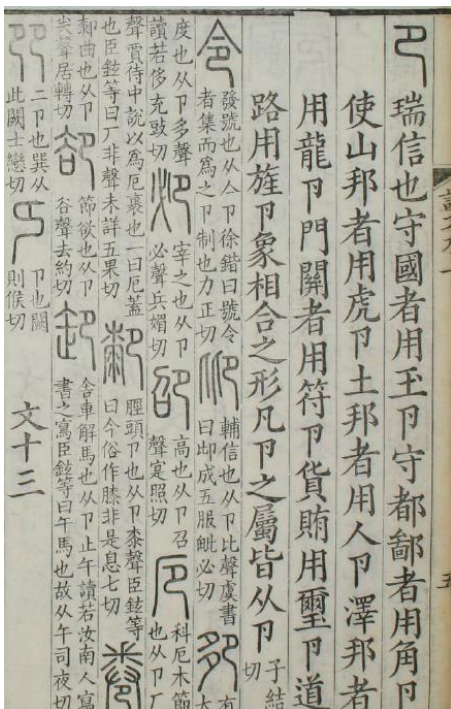 卪瑞信也守國者用玉卪守都鄙者用角卪
使山邦者用虎卪土邦者用人卪澤邦者
用龍卪門關者用符卪貨賄用璽卪道
路用旌卪象相合之形凡卪之屬皆从卪子結切
令發號也从亼卪徐鍇曰號令者集而為之卪制也力正切𠨒輔信也从卪比聲虞書曰𠨒成五服毗必切𠨘有大
度也从卪多聲讀若侈充豉切𠨚宰之也从卪必聲兵媚切卲高也从卪召聲寔照切厄科厄木節也从卪厂
聲賈侍中說以為厄裹也一曰厄蓋也臣鉉等曰厂非聲未詳五果切厀脛頭卪也从卪桼聲臣鉉等曰今俗作膝非是息七切卷
厀曲也从卪𢍏聲居轉切卻節欲也从卪谷聲去約切卸舍車解馬也从卪止午讀若汝南人寫書之寫臣鉉等曰午馬也故从午司夜切
𠨎二卪也巽从此闕士戀切𠨍卪也闕則候切
文十三